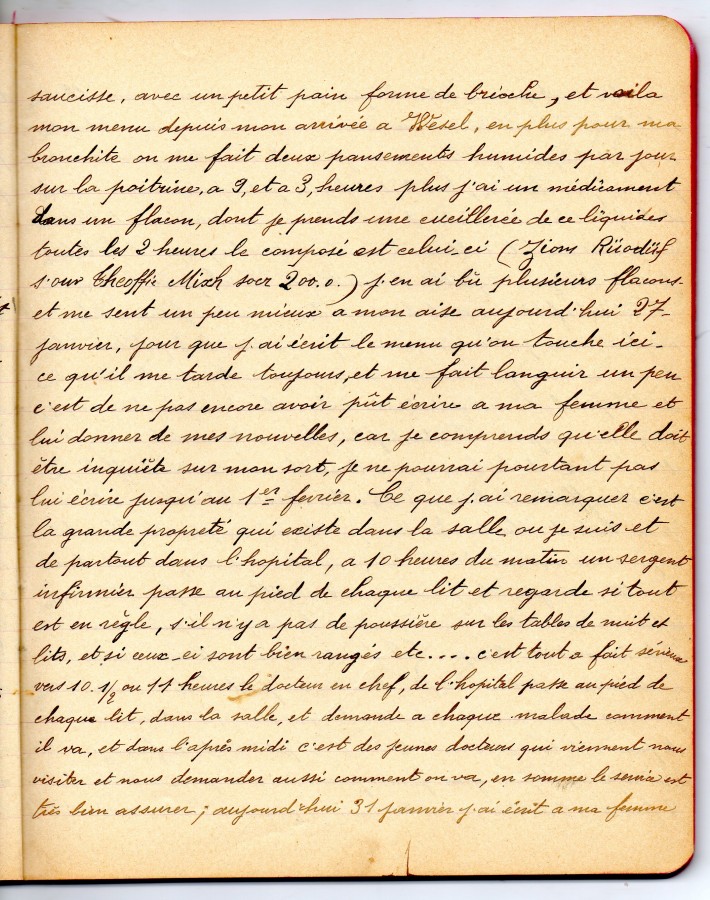 saucisse, avec un petit pain forme de brioche, et voila
mon menu depuis mon arrivée a Wesel, en plus pour ma
bronchite on me fait deux pansements humides par jour
sur la poitrine, a 9, et a 3, heures plus j'ai un médicament
dans un flacon, dont je prends une cueillerée de ce liquides
toutes les 2 heures le composé est celui-ci (
200.0.) j'en ai bû plusieurs flacons
et me sent un peu mieux a mon aise aujourd'hui 27-
janvier, jour que j'ai écrit le menu qu'on touche ici-
ce qu'il me tarde toujours, et me fait languir un peu
c'est de ne pas encore avoir pût écrire a ma femme et
lui donner de mes nouvelles, car je comprends qu'elle doit
être inquiète sur mon sort, je ne pourrai pourtant pas
lui écrire jusqu'au 1er fevrier. Ce que j'ai remarquer c'est
la grande propreté qui existe dans la salle ou je suis et
de partout dans l'hopital, a 10 heures du matin un sergent
infirmier passe au pied de chaque lit et regarde si tout
est en règle, s'il n'y a pas de poussière sur les tables de nuit et
lits, et si ceux-ci sont bien rangés etc.... c'est tout a fait sérieux
vers 10.1/2 ou 11 heures le docteur en chef, de l'hopital passe au pied de
chaque lit, dans la salle, et demande a chaque malade comment
il va, et dans l'après midi c'est des jeunes docteurs qui viennent nous
visiter et nous demander aussi comment on va, en somme le service est
très bien assurer; aujourd'hui 31 janvier j'ai écrit a ma femme